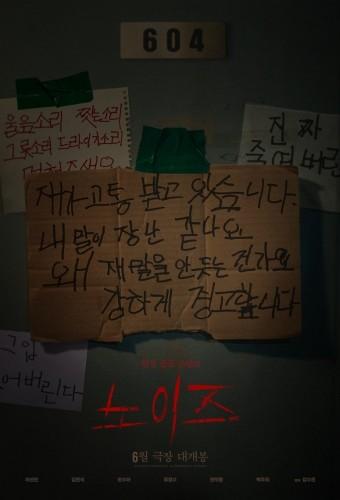 604
울음소리 찢는소리
그릇소리
진짜
죽여버린
제가 고통 받고 있습니다.
내 말이 장난 같나요.
왜 제 말을 안 듣는 건가요
강하게 경고합니다
그입
어버린다
노이즈
6월 극장 대개봉